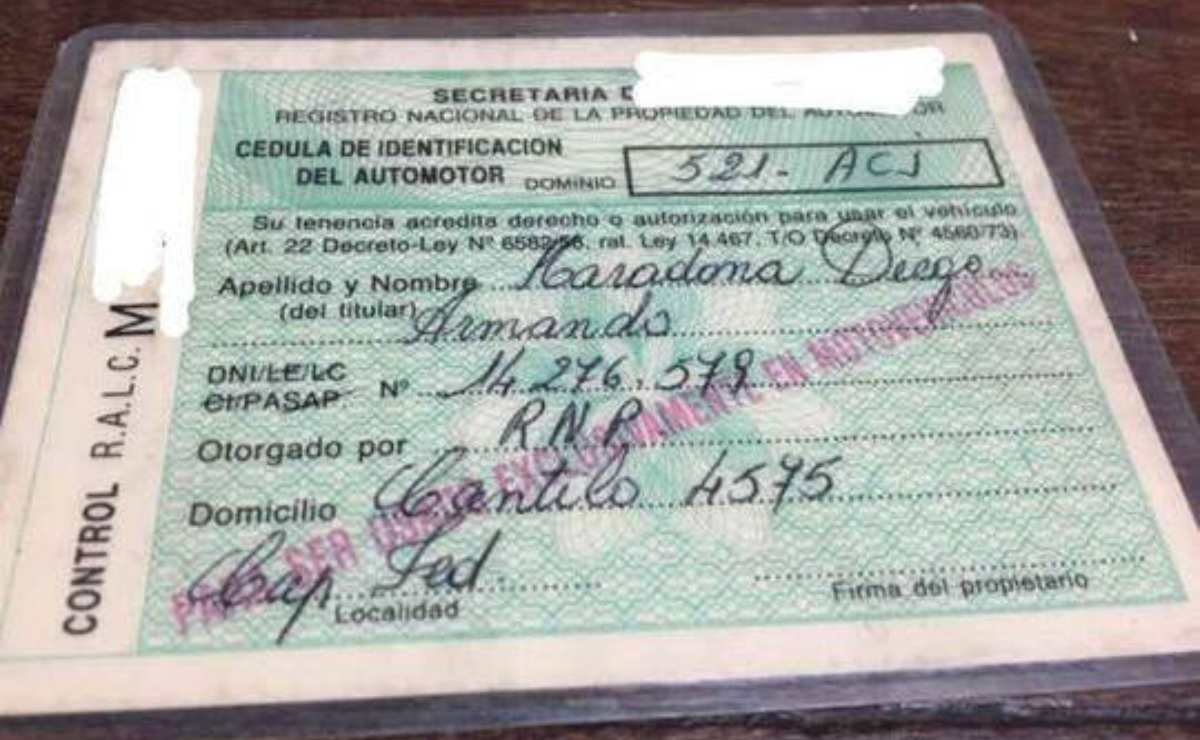 SECRETARIA D
REGISTRO NACIONAL DE LA PROPIEDAD DEL AUTOMOTOR
CEDULA DE IDENTIFICACION
DEL AUTOMOTOR DOMINIO 521- ACJ
Su tenencia acredita derecho o autorización para usar el vehículo
(Art. 22 Decreto-Ley Nº 6582/58, rat. Ley 14.467, T/O Decreto Nº 4560/73)
Apellido y Nombre Maradona Diego
(del titular) Armando
DNI/LE/LC
CI/PASAP. Nº 14.276.579
Otorgado por R N P
Domicilio Cantilo 4575
Cap Fed
Localidad
Firma del propietario
CONTROL R.A.L.C. M
PARA SER USADA EXCLUSIVAMENTE EN MOTOVEHICULOS